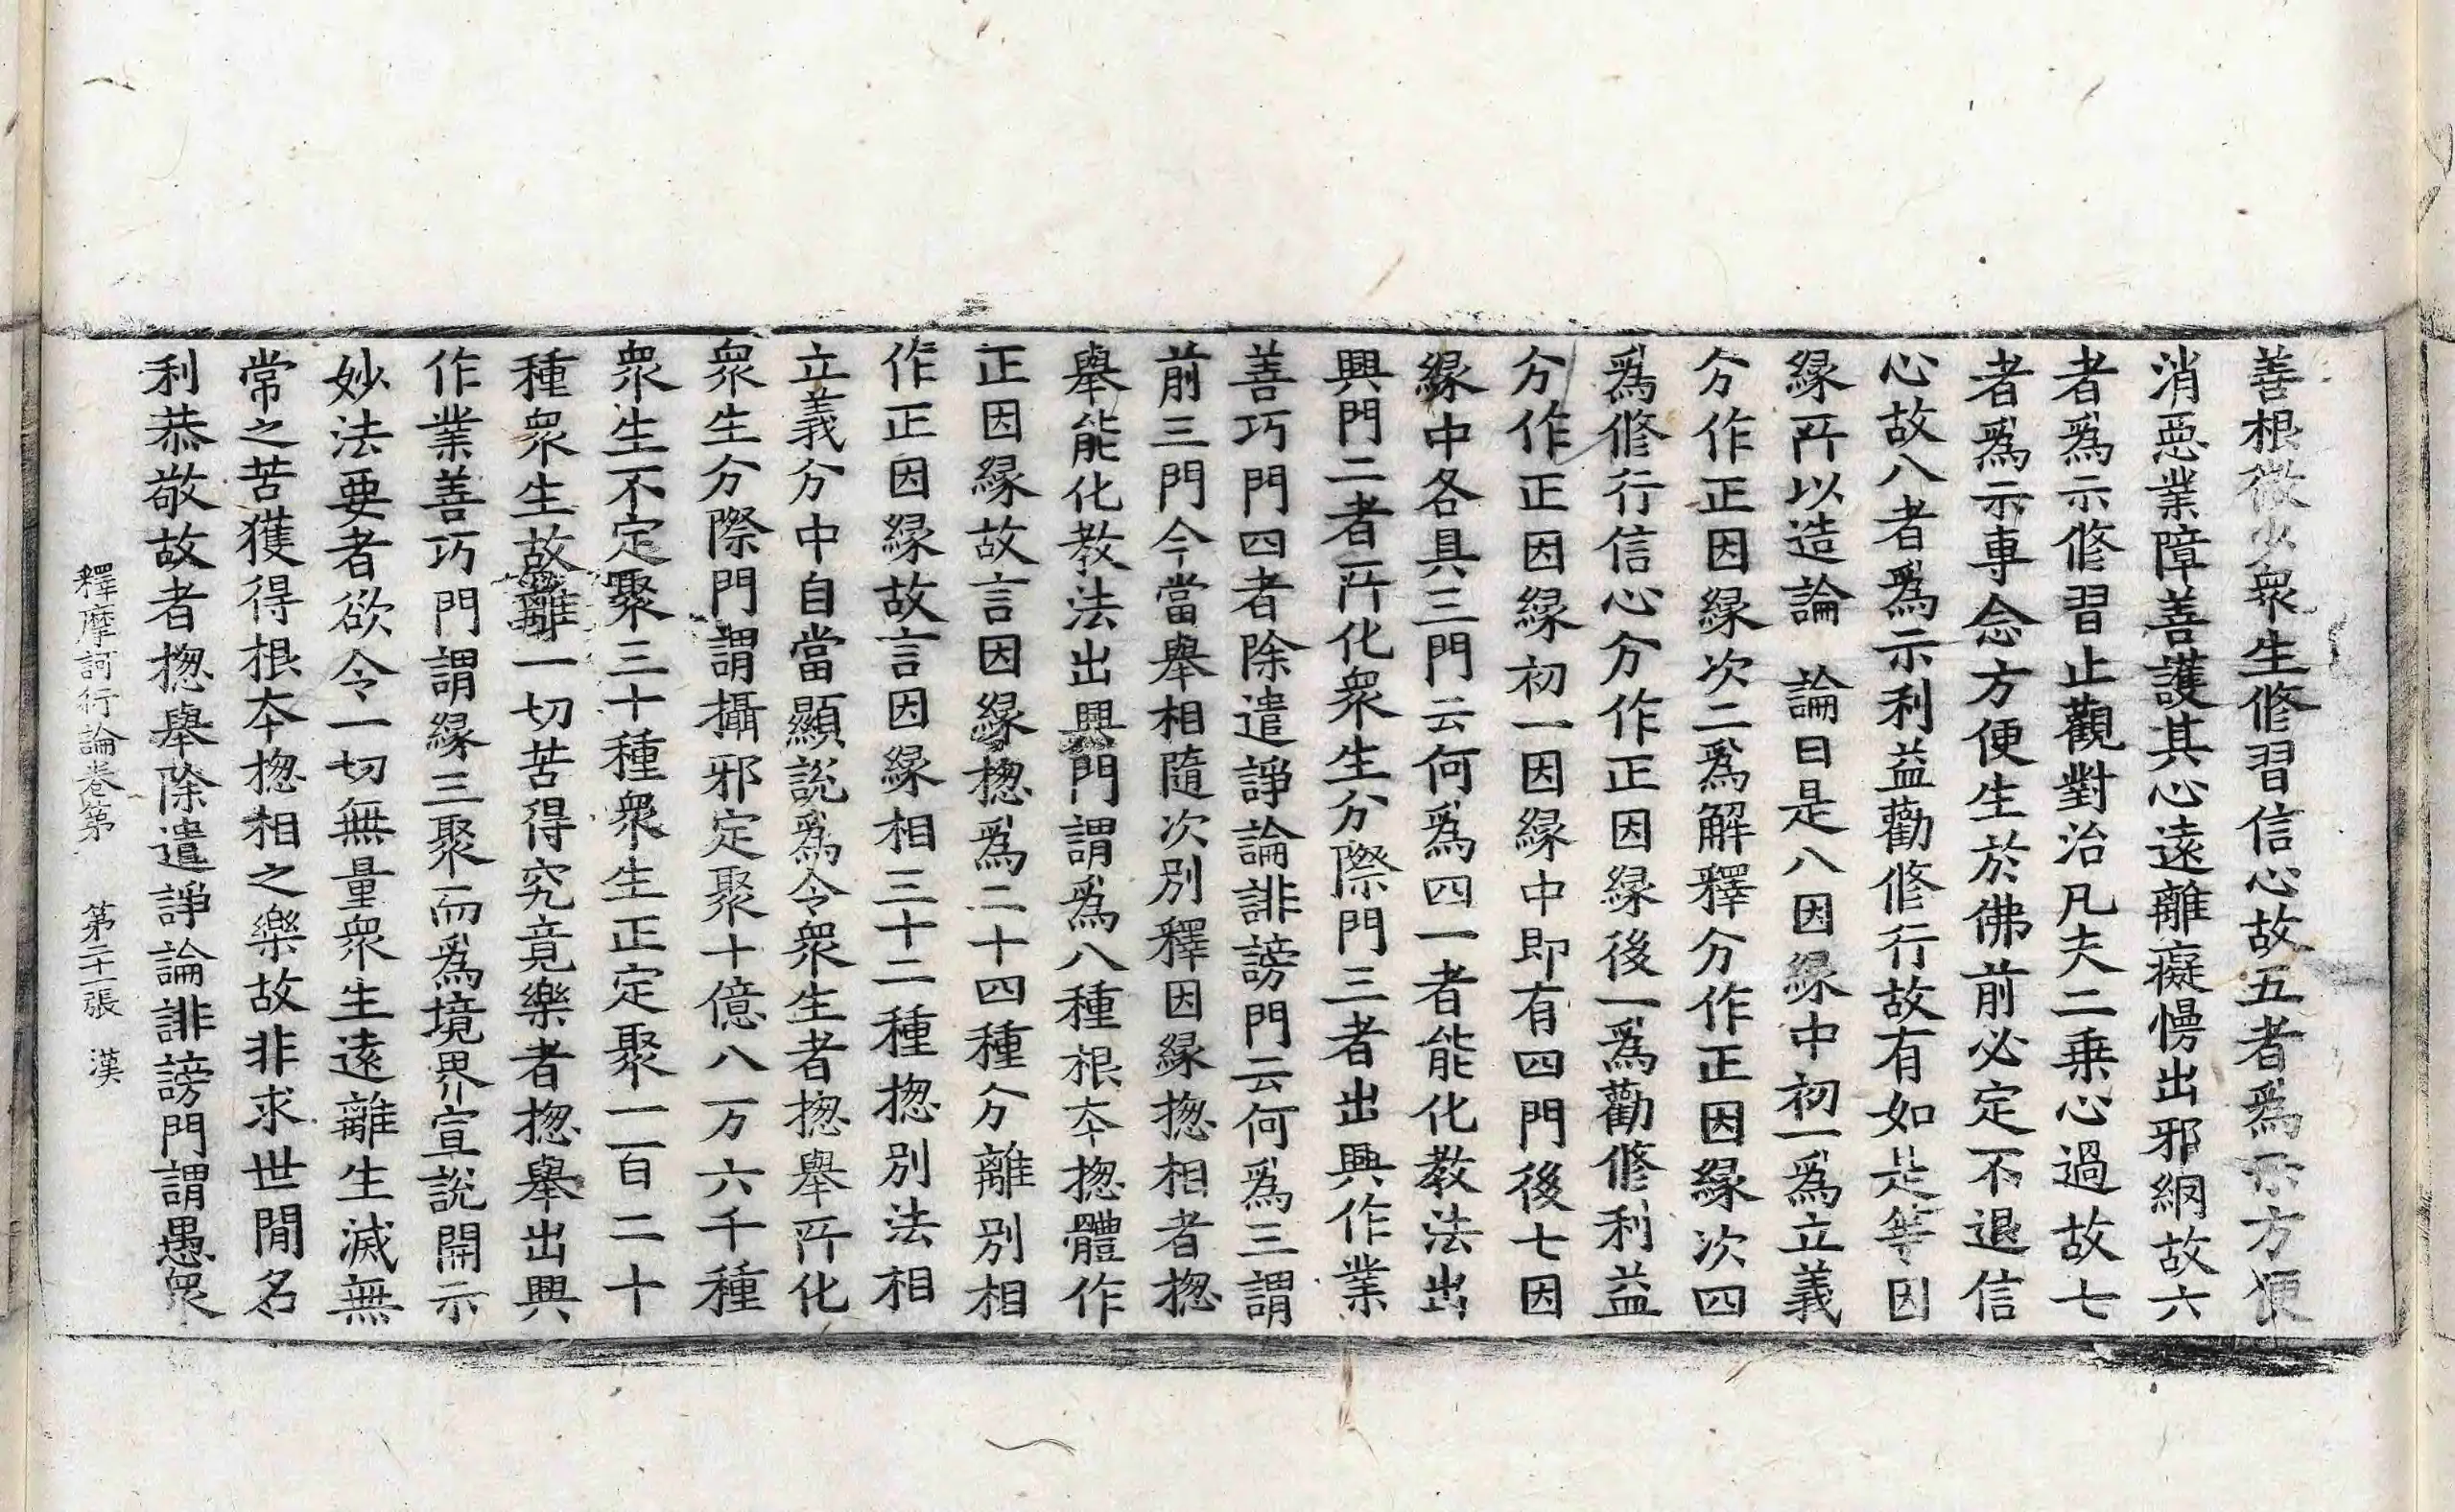 善根微少衆生修習信心故五者爲示方便
消惡業障善護其心遠離癡慢出邪網故六
者爲示修習止觀對治凡夫二乗心過故七
者爲示專念方便生於佛前必定不退信
心故八者爲示利益勸修行故有如是等因
縁所以造論　論曰是八因縁中初一爲立義
分作正因縁次二爲解釋分作正因縁次四
爲修行信心分作正因縁後一爲勸修利益
分作正因縁初一因縁中即有四門後七因
縁中各具三門云何爲四一者能化教法出
興門二者所化衆生分際門三者出興作業
善巧門四者除遣諍論誹謗門云何爲三謂
前三門今當舉相隨次別釋因縁捴相者捴
舉能化教法出興門謂爲八種根夲捴體作
正因縁故言因縁捴爲二十四種分離別相
作正因縁故言因縁相三十二種捴別法相
立義分中自當顯説爲令衆生者捴舉所化
衆生分際門謂攝邪定聚十億八万六千種
衆生不定聚三十種衆生正定聚一百二十
種衆生故離一切苦得究竟樂者捴舉出興
作業善巧門謂縁三聚而爲境界宣説開示
妙法要者欲令一切無量衆生遠離生滅無
常之苦獲得根夲捴相之樂故非求世間名
利恭敬故者捴舉除遣諍論誹謗門謂愚衆
釋摩訶衍論卷第　第二十一張　漢